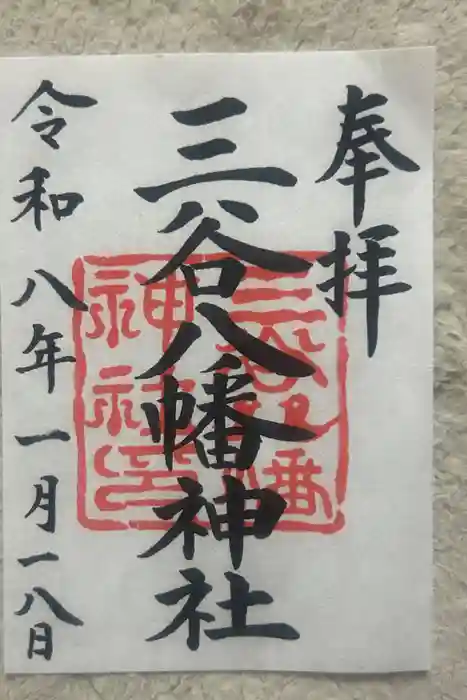 奉拝
三谷八幡神社
三谷八幡
神社印
令和八年一月一八日